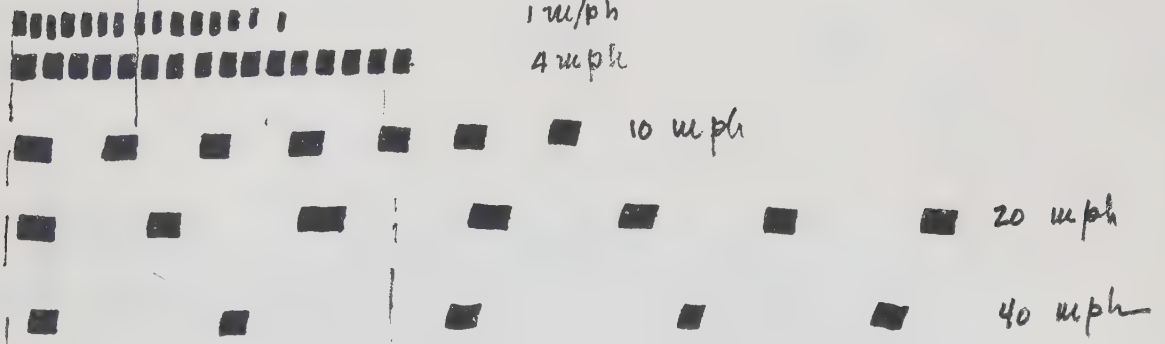 1 m/ph
4 mph
10 mph
20 mph
40 mph